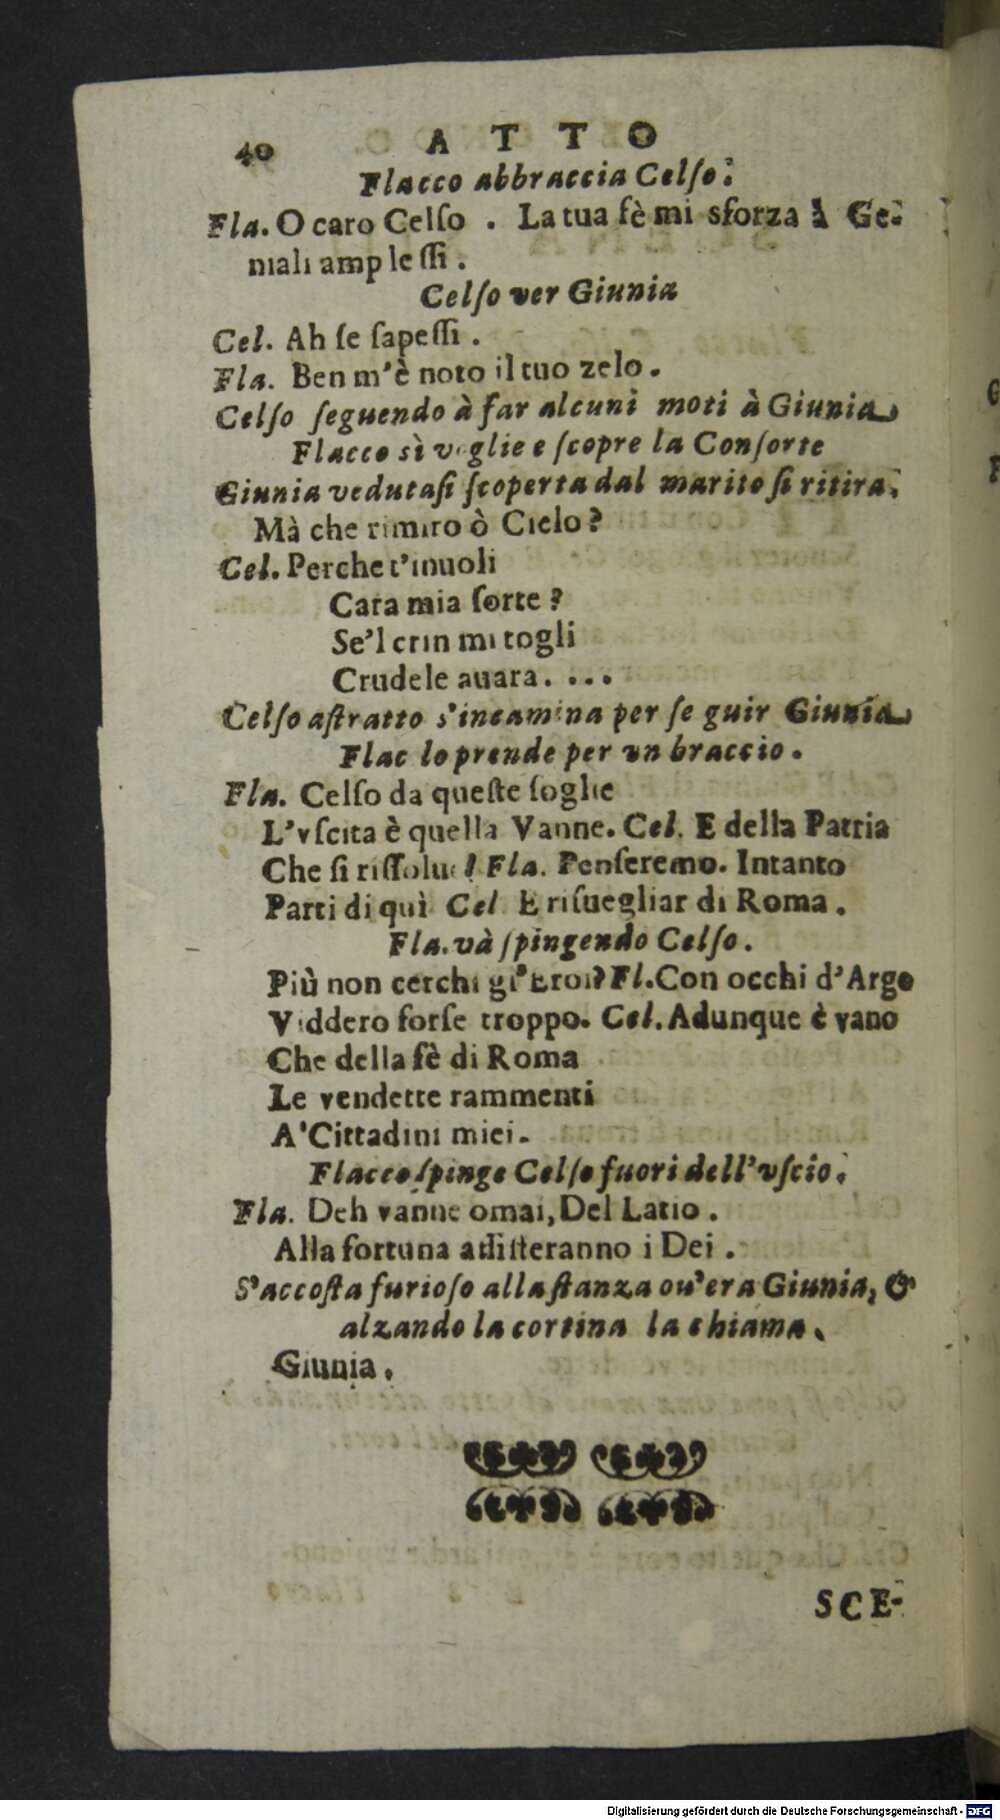 40 ATTO
Flacco abbraccia Celſo.
Fla. O caro Celſo . La tua fè mi sforza à Ge-
niali ampleſſi .
Celſo ver Giunia
Cel. Ah ſe ſapeſſi .
Fla. Ben m'è noto il tuo zelo .
Celſo ſeguendo à far alcuni moti à Giunia
Flacco sì voglie e ſcopre la Conſorte
Giunia vedutaſi ſcoperta dal marito ſi ritira.
Mà che rimiro ò Cielo ?
Cel. Perche t'inuoli
Cara mia ſorte ?
Se'l crin mi togli
Crudele auara. ...
Celſo aſtratto s'incamina per ſe guir Giunia
Flac lo prende per vn braccio .
Fla. Celſo da queſte ſoglie
L'vſcita è quella Vanne. Cel. E della Patria
Che ſi riſſolue? Fla. Penſeremo. Intanto
Parti di quì Cel E riſuegliar di Roma .
Fla. và ſpingendo Celſo .
Più non cerchi gl'Eroi? Fl. Con occhi d'Argo
Viddero forſe troppo. Cel. Adunque è vano
Che della fè di Roma
Le vendette rammenti
A'Cittadini miei.
Flacco ſpinge Celſo fuori dell'vſcio.
Fla. Deh vanne omai, Del Latio .
Alla fortuna aſſiſteranno i Dei .
S'accoſta furioſo alla ſtanza ou'era Giunia, &
alzando la cortina la chiama.
Giunia.
SCE-
Digitalisierung gefördert durch die Deutsche Forschungsgemeinschaft - DFG